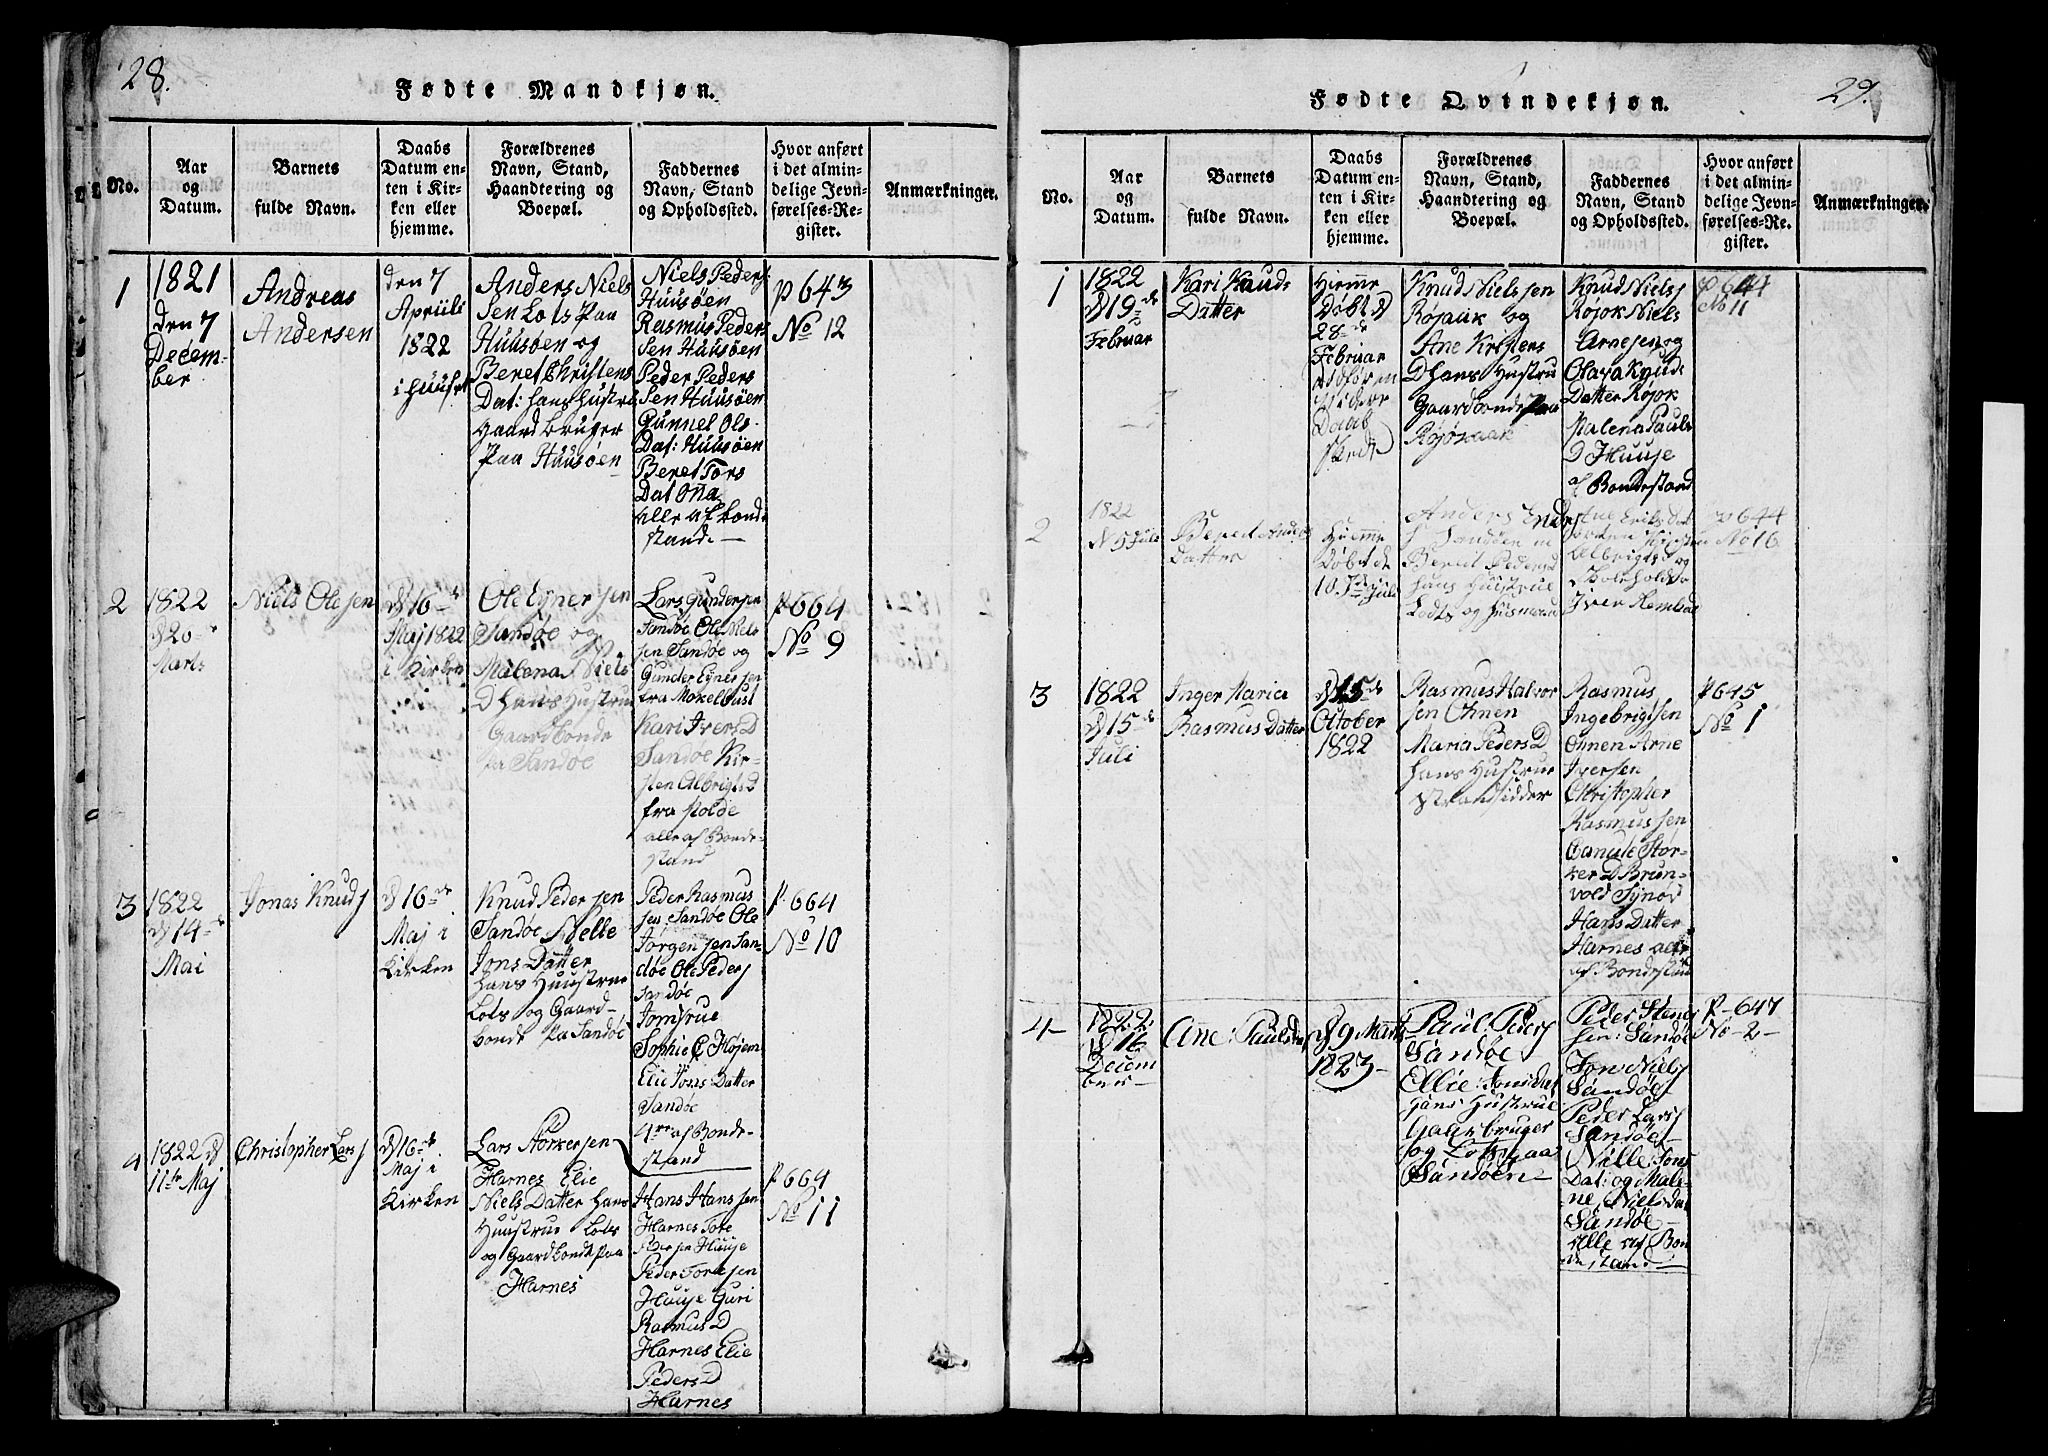 28.
Fødte Mandkjøn.
No.
Aar
og
Datum.
Barnets
fulde Navn.
Daabs
Datum en-
ten i Kir-
ken eller
hjemme.
Forældrenes
Navn, Stand,
Haandtering og
Boepæl.
Faddernes
Navn, Stand
og Opholdssted.
Hvor anført
i det almin-
delige Jevn-
førelses-Re-
gister.
Anmærkninger.
1
1821
den 7
Decem-
ber
Andreas
Andersen
den 7
Apriili
1822
i Huuset
Anders Niels
Sen Lots Paa
Huusøen og
Beret Christens
Dat: hans Hustru
Gaard bruger
Paa Huusøen
Niels Peders
Huusøen
Rasmus Peder
Sen Huusøen
Peder Peders
Sen Huusøen
Gunnel Ols
Dat: Huusøen
Beret Tors
Dat Ona
alle af bonde
stande
P 643
No 12
2
1822
d 20de
Marts
Niels Olesen
d 16de
Maj 1822
i Kirken
Ole Eyner sen
Sandøe og
Malena Niels
D hans Hustrue
Gaardbonde
pa Sandøe
Lars Gundersen
Sandøe Ole Niels
sen Sandøe og
Gunder Eyner sen
fra Mokelbust
Kari Ivers D
Sandøe Kir-
sten Albrigts D
fra Molde
alle af Bonde-
stand
P 664
No 9
3
1822
d 14de
Mai
Jonas Knuds
d 16de
Maj i
Kirken
Knud Peder sen
Sandøe Nelle
Jons Datter
hans Huustrue
Lots og Gaard-
bonde Pa Sandøe
Peder Rasmus
sen Sandøe Ole
Jørgen sen San-
døe Ole Peders
Sandøe
Jomfrue
Sophie C Højem
Elie Jons Datter
Sandøe
af Bonde-
stand
P 664
No 10
4
1822 d
11te Maj
Christopher Lars
d 16de
Maj i
Kirken
Lars Storkersen
Harnes Elie
Niels Datter hans
Huustrue Lots
og Gaardbonde Paa
Harnes
Hans Hans sen
Harnes Tore
Huuse
Peder Tore sen
Huuse Guri
Rasmus D
Harnes Elie
Peders D
Harnes
P 664
No 11
29.
Fødte Qvindekjøn.
No.
Aar
og
Datum.
Barnets
fulde Navn.
Daabs
Datum en-
ten i Kir-
ken eller
hjemme.
Forældrenes
Navn, Stand,
Haandtering og
Boepæl.
Faddernes
Navn, Stand
og Opholdssted.
Hvor anført
i det almin-
delige Jevn-
førelses-Re-
gister.
Anmærkninger.
1
1822
d 19de
Februar
Kari Knuds
Datter
Hiemme
Døbt d
28de
Februar
Daab
Knud Niels sen
Røjaak og
Ane Kristens
D hans Hustru
Gaardbonde paa
Røjøkaak
Knud Niels
Røjok Niels
Arnesen og
Olava Knuds
Datter Røjok
Malena Pauls
D Huuse
af Bondestand
P 644
No 11
2
1822
5 Juli
Bered Anders
Datter
Hiemme
Døbt d
10de Juli
Anders
Sandøen
Berit Peders D
hans Huustrue
Lots og Huusmand
Albrigtsd og
Iver
P 644
No 16
3
1822
d 15de
Juli
Inger Maria
Rasmus Datter
d 15de
October
1822
Rasmus Halvor
sen Ohnen
Maria Peders D
hans Hustrue
Strandsidder
Rasmus
Ingebrigtsen
Ohnen Arne
Iversen
Christopher
Rasmus sen
Størk-
ker D Brun-
vold Synør
Hans Datter
Harnes alle
af Bondestand
P 645
No 1
4
1822
d 16
Decem
ber
Ane: Paulsdat
d 9 Marts
1823
Paul: Peders
Sandøe
Ellie: Jonsdat
Hans Hustrue
Gaardbruger
og Lots paa
Sandøen
Peder Stenes
sen: Sandøe
Jon Niels
Sandøe
Peder Lars
Sandøe
Nille: Jons
Dat: og Male-
ne, Niels dat
Sandøe
Alle af Bon
destand
P-647
No-2-